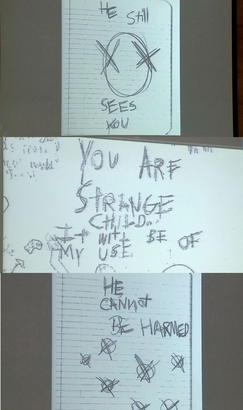 HE Still
SEES
YOU
YOU ARE
STRANGE
CHILD..
It WILL BE OF
MY USE
HE
CANNOT
BE HARMED